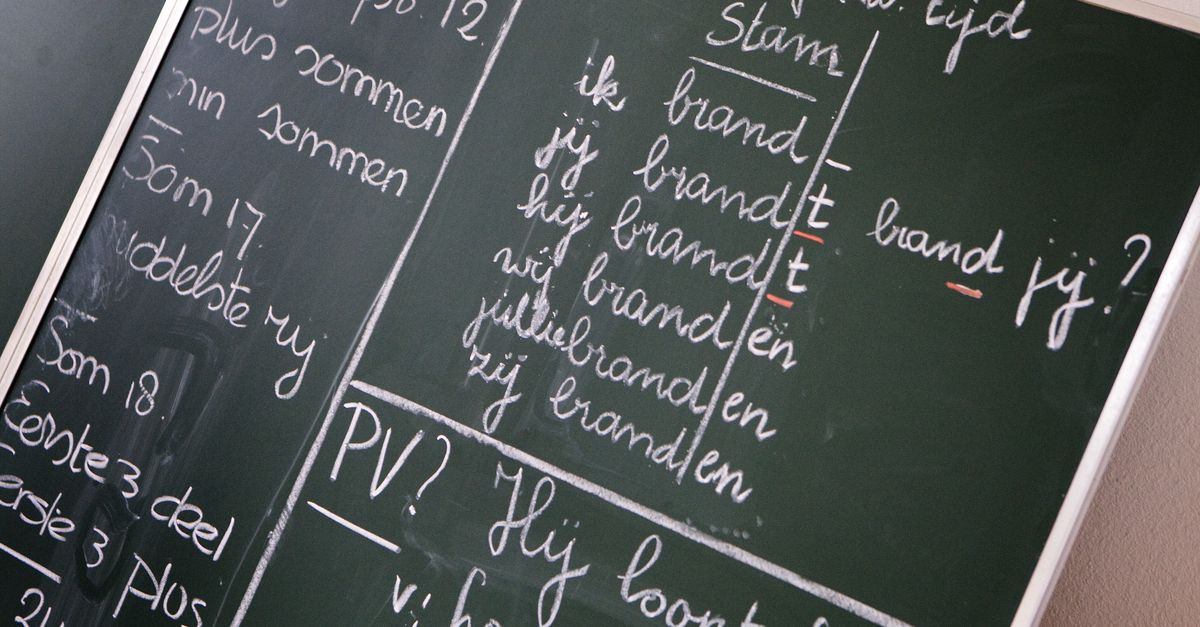 12.
plus sommen
min sommen
Som 17.
middelste rij
Som 18.
Eerste 3 deel
Eerste 3 plus
tijd
Stam
ik brand -
jij brand t brand jij?
hij brand t
wij brand en
jullie brand en
zij brand en
PV? Hij loopt